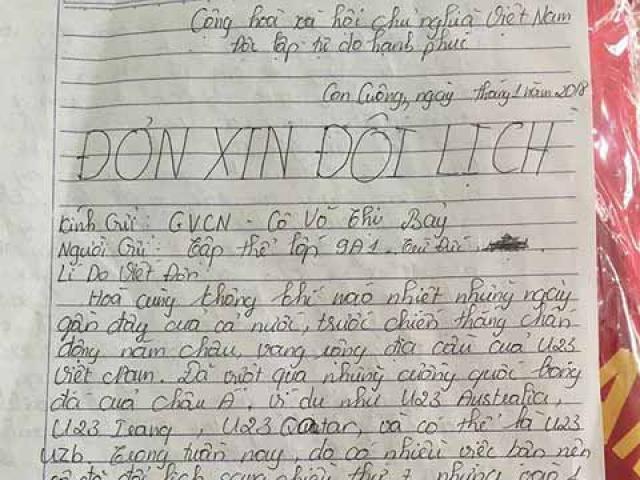 Cộng hoà xã hội chủ nghĩa Việt Nam
Độc lập tự do hạnh phúc
Con Cuông, ngày tháng 1 năm 2018
ĐƠN XIN ĐỔI LỊCH
Kính Gửi: GVCN - Cô Võ Thị Bảy
Người Gửi: Tập thể lớp 9A1
Lí Do Viết Đơn:
Hoà cùng không khí náo nhiệt những ngày
gần đây của cả nước, trước chiến thắng chấn
động năm châu, vang vọng địa cầu của U23
Việt Nam. Đã vượt qua những cường quốc bóng
đá của châu Á, ví dụ như U23 Australia,
U23 Iraq, U23 Qatar, và có thể là U23
Uzb. Trong tuần này, do có nhiều việc bận nên
đổi lịch sang chiều thứ 7, nhưng